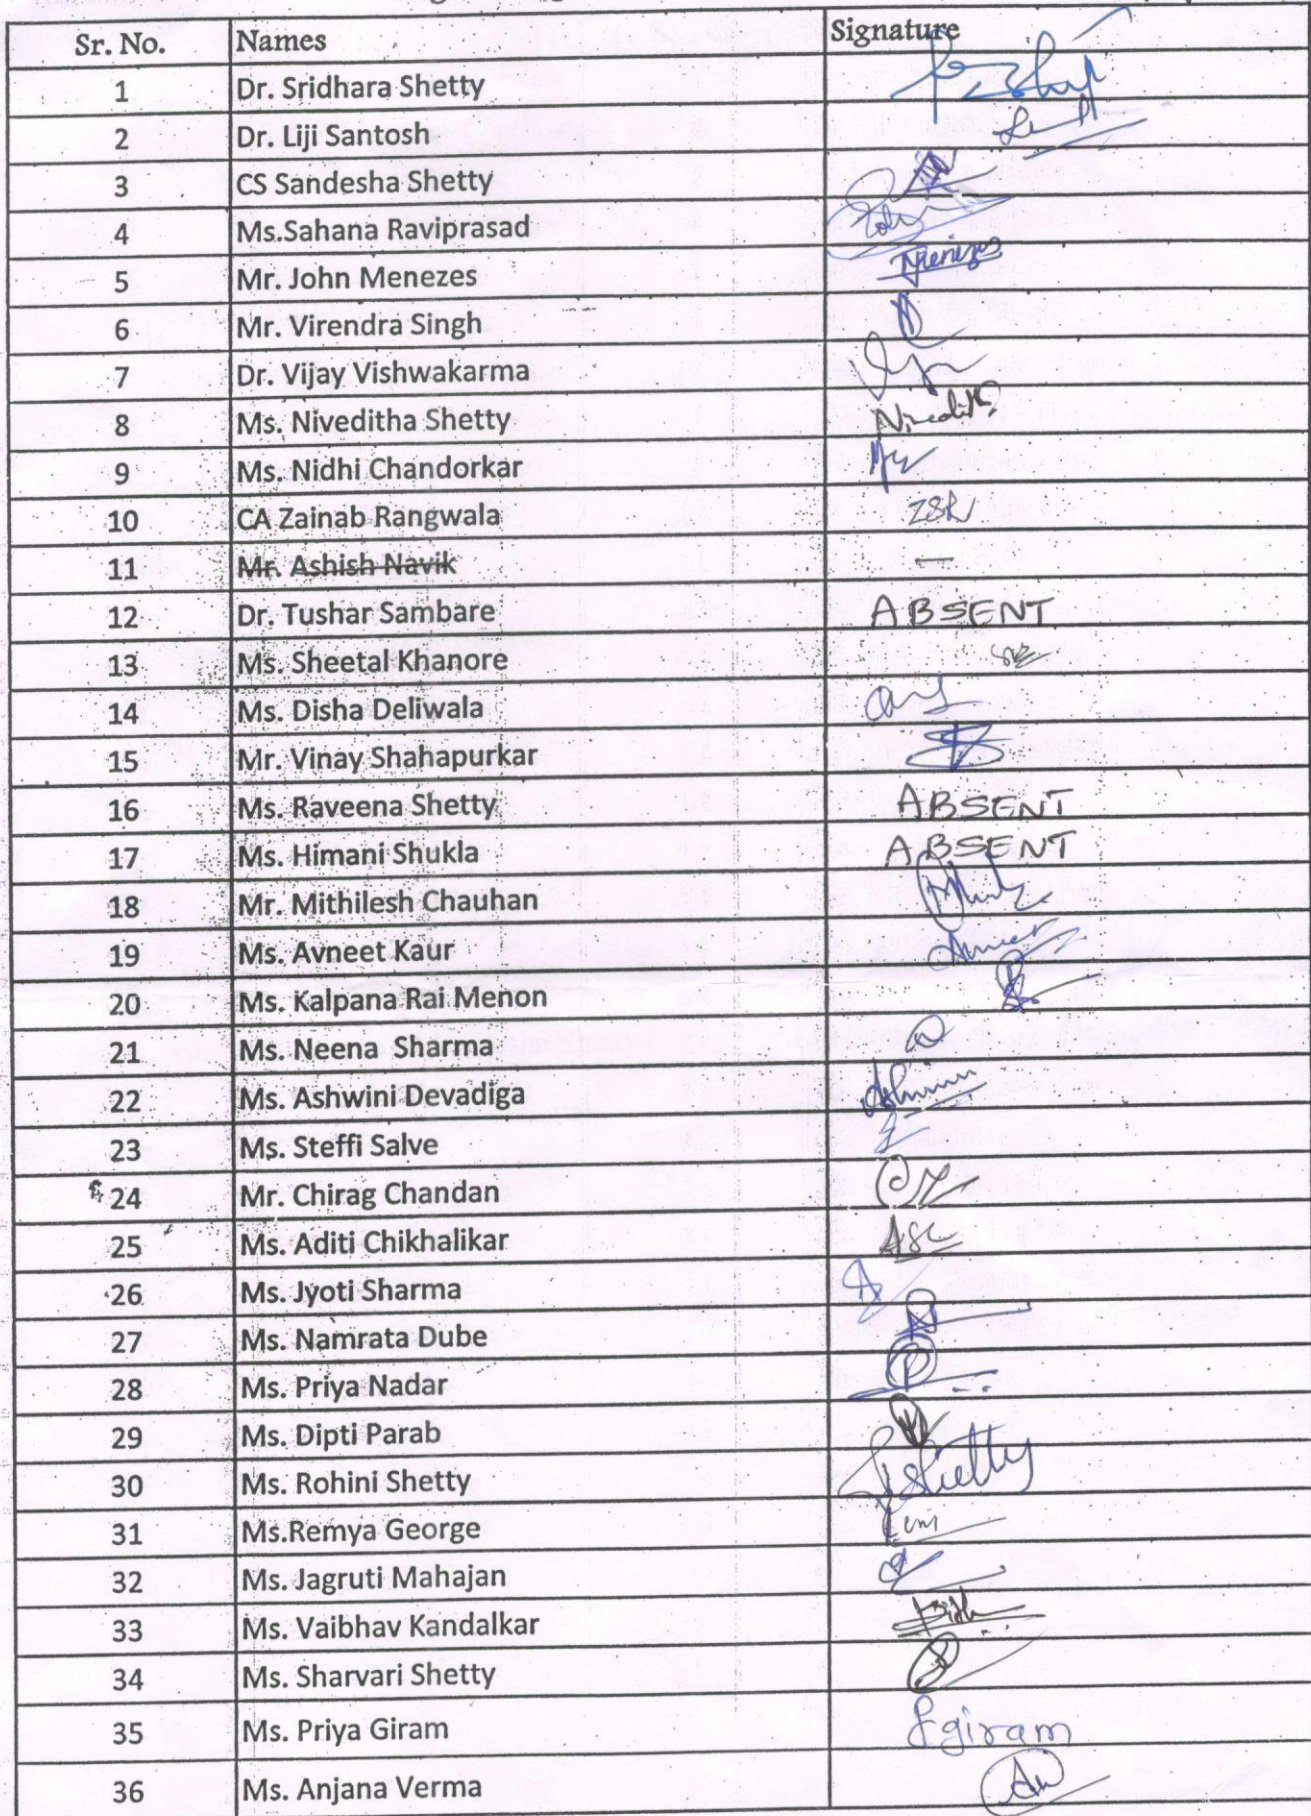 Sr. No. Names Signature
1 Dr. Sridhara Shetty
2 Dr. Liji Santosh
3 CS Sandesha Shetty
4 Ms.Sahana Raviprasad
5 Mr. John Menezes Menezes
6 Mr. Virendra Singh
7 Dr. Vijay Vishwakarma
8 Ms. Niveditha Shetty Niveditha
9 Ms. Nidhi Chandorkar
10 CA Zainab Rangwala ZSR
11 Mr. Ashish Navik —
12 Dr. Tushar Sambare ABSENT
13 Ms. Sheetal Khanore
14 Ms. Disha Deliwala
15 Mr. Vinay Shahapurkar
16 Ms. Raveena Shetty ABSENT
17 Ms. Himani Shukla ABSENT
18 Mr. Mithilesh Chauhan
19 Ms. Avneet Kaur
20 Ms. Kalpana Rai Menon
21 Ms. Neena Sharma
22 Ms. Ashwini Devadiga
23 Ms. Steffi Salve
24 Mr. Chirag Chandan
25 Ms. Aditi Chikhalikar ASC
26 Ms. Jyoti Sharma
27 Ms. Namrata Dube
28 Ms. Priya Nadar
29 Ms. Dipti Parab
30 Ms. Rohini Shetty Shetty
31 Ms.Remya George
32 Ms. Jagruti Mahajan
33 Ms. Vaibhav Kandalkar
34 Ms. Sharvari Shetty
35 Ms. Priya Giram Pgiram
36 Ms. Anjana Verma